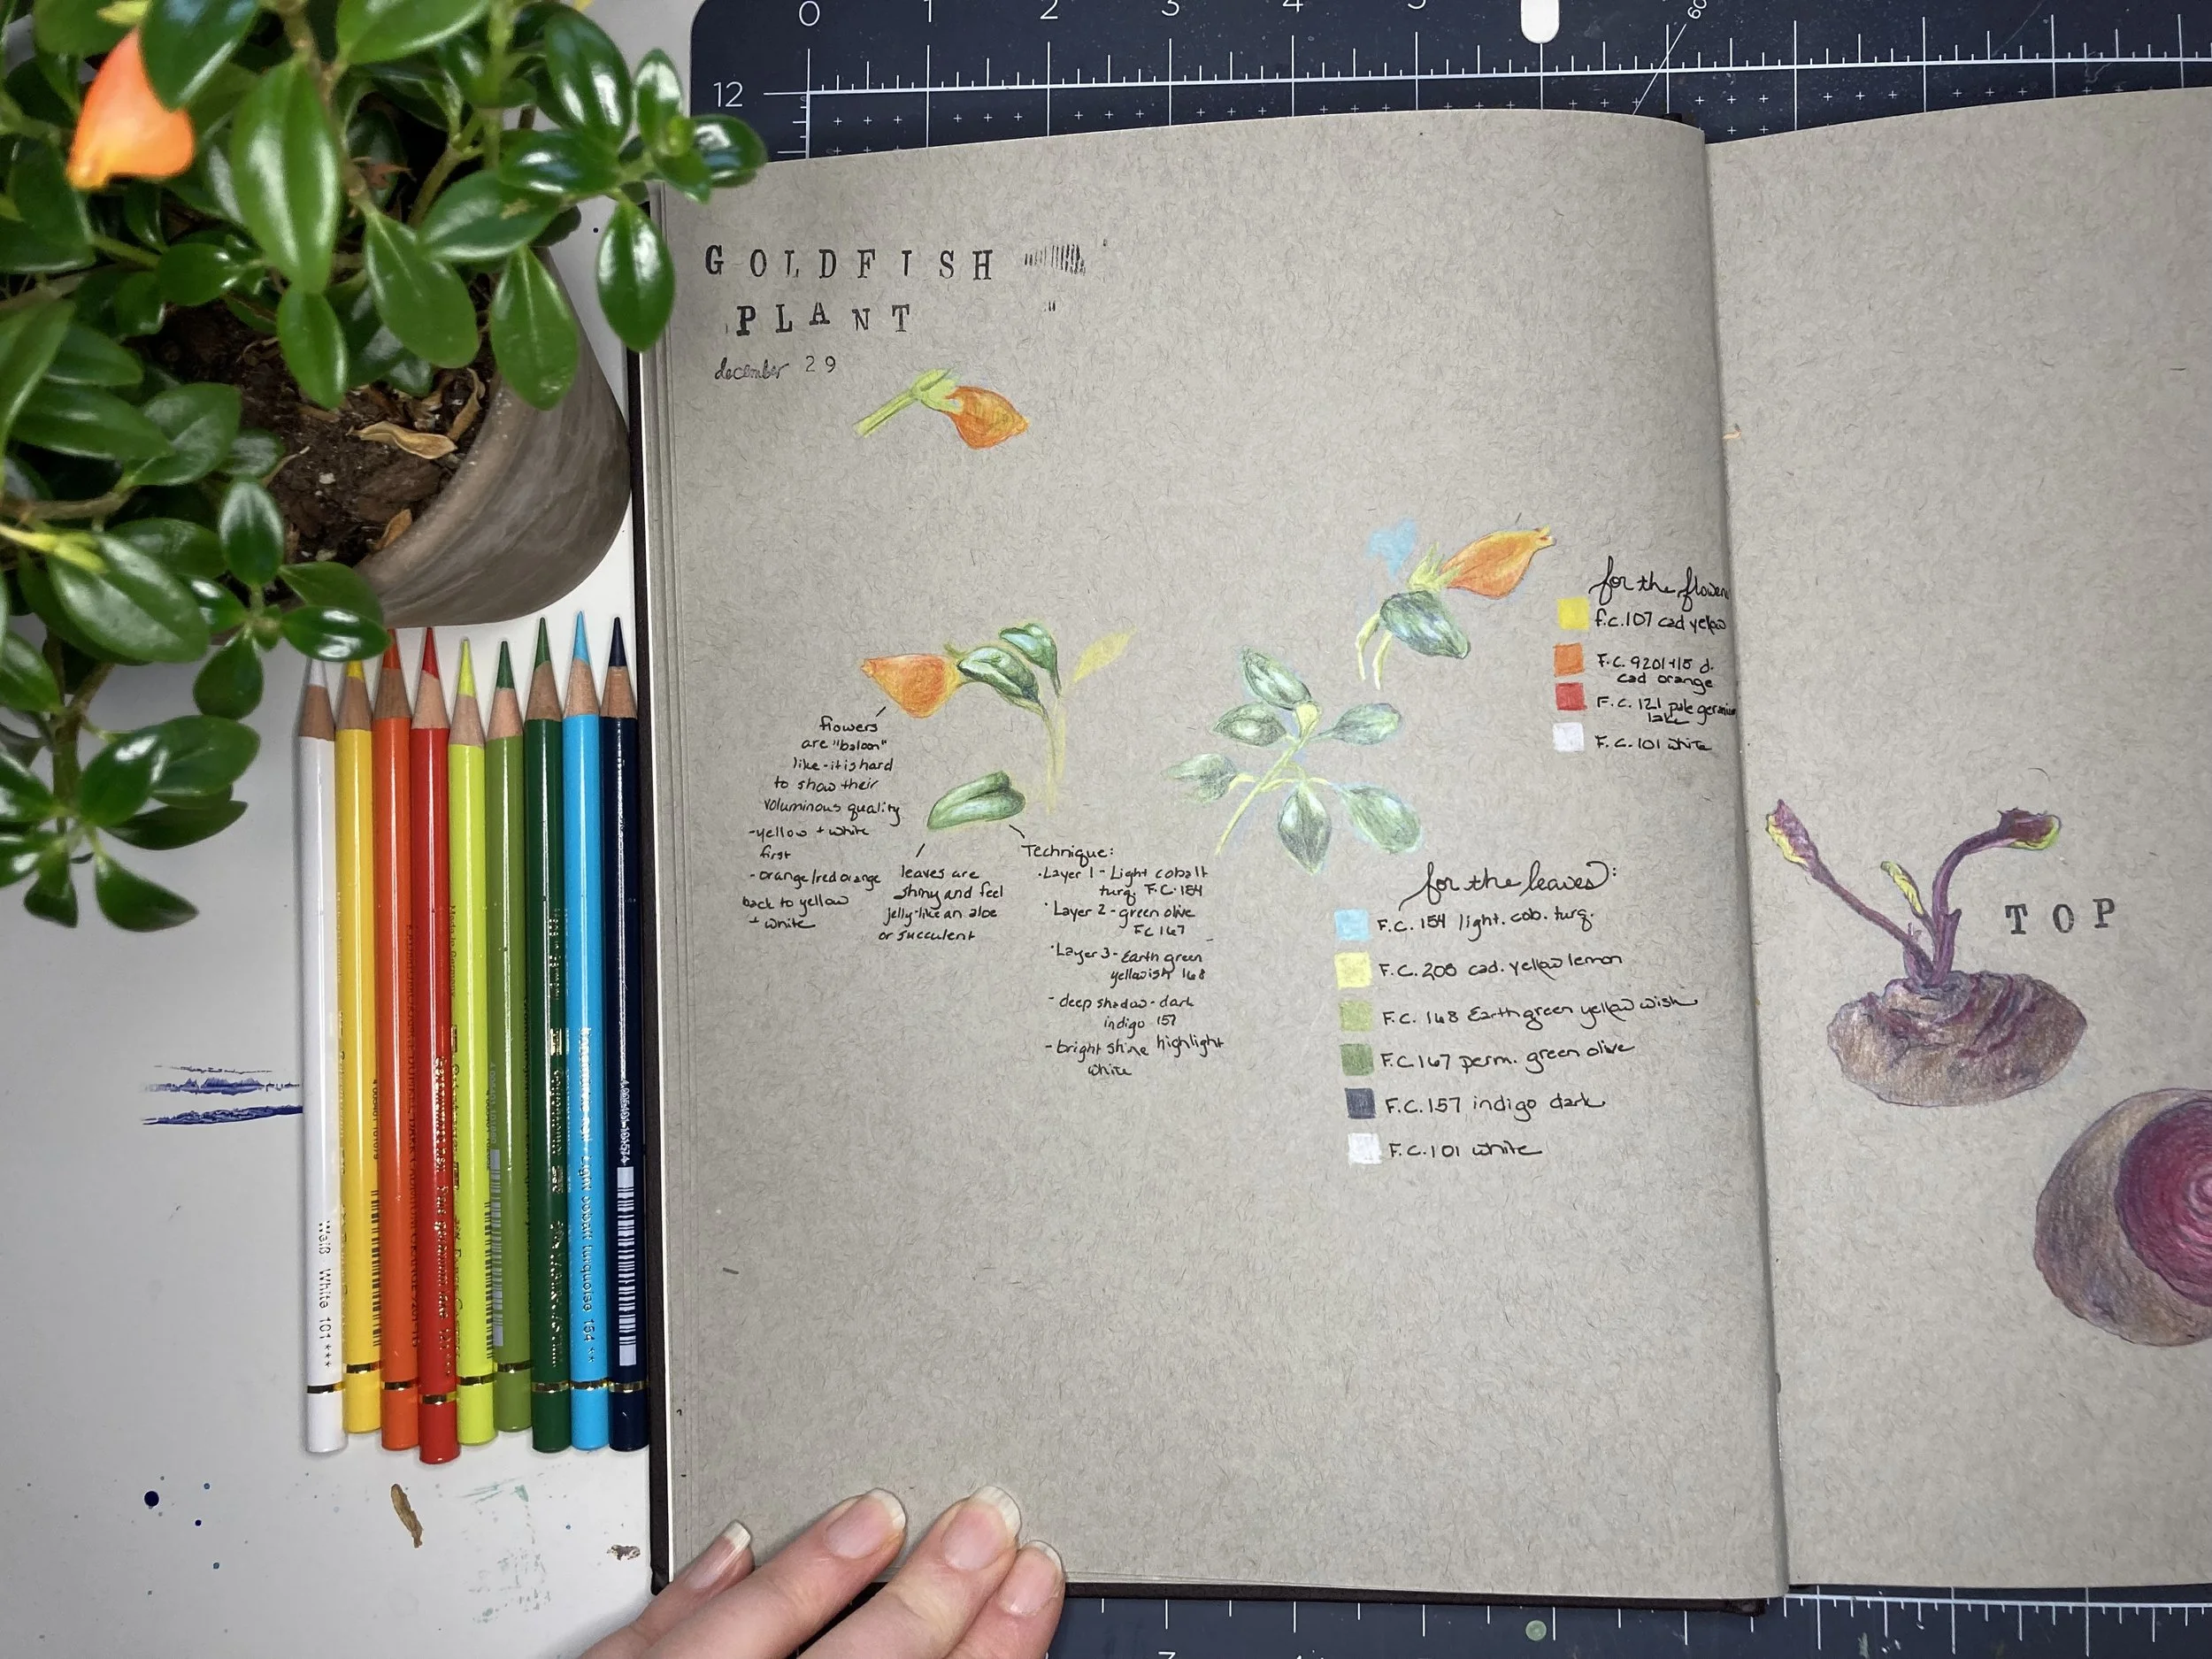 0 1 2 3 4 5 60
12
GOLDFISH
PLANT
december 29
for the flowers
f.c.107 cad yellow
F.C. 9201+15 d.
cad orange
F.C. 121 pale geranium
lake
F.C. 101 white
flowers
are "baloon"
like - it is hard
to show their
voluminous quality
- yellow + white
first
- orange/red orange
back to yellow
+ white
leaves are
shiny and feel
jelly-like an aloe
or succulent
Technique:
·Layer 1 - Light cobalt
turq. F.C.154
·Layer 2 - green olive
FC 167
·Layer 3 - Earth green
yellowish 168
- deep shadow - dark
indigo 157
- bright shine highlight
white
for the leaves:
F.C. 154 light. cob. turq.
F.C. 205 cad. yellow lemon
F.C. 168 Earth green yellow wish
F.C. 167 perm. green olive
F.C. 157 indigo dark
F.C. 101 white
TOP
Weiß White 101 ***
Light cobalt turquoise 154 **
3 4